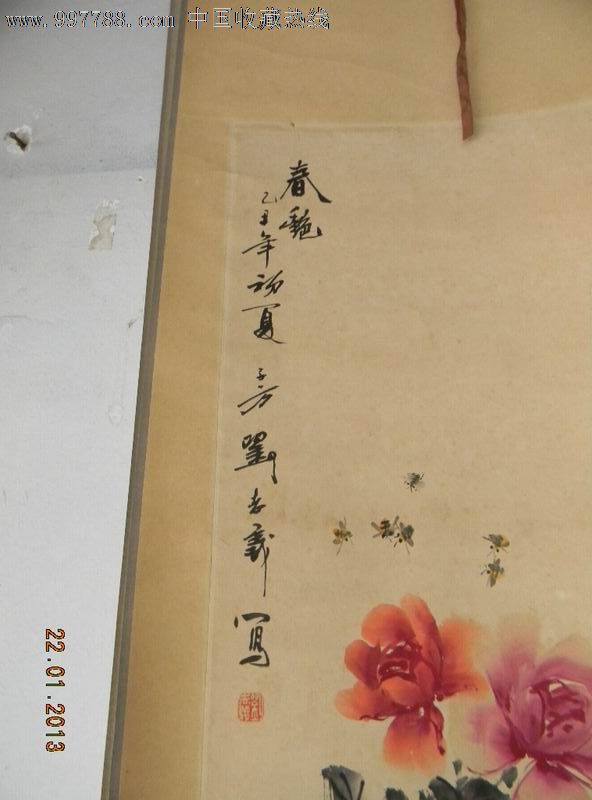 www.997788.com 中国收藏热线
春艳
乙丑年初夏子芳劉志義寫
22.01.2013